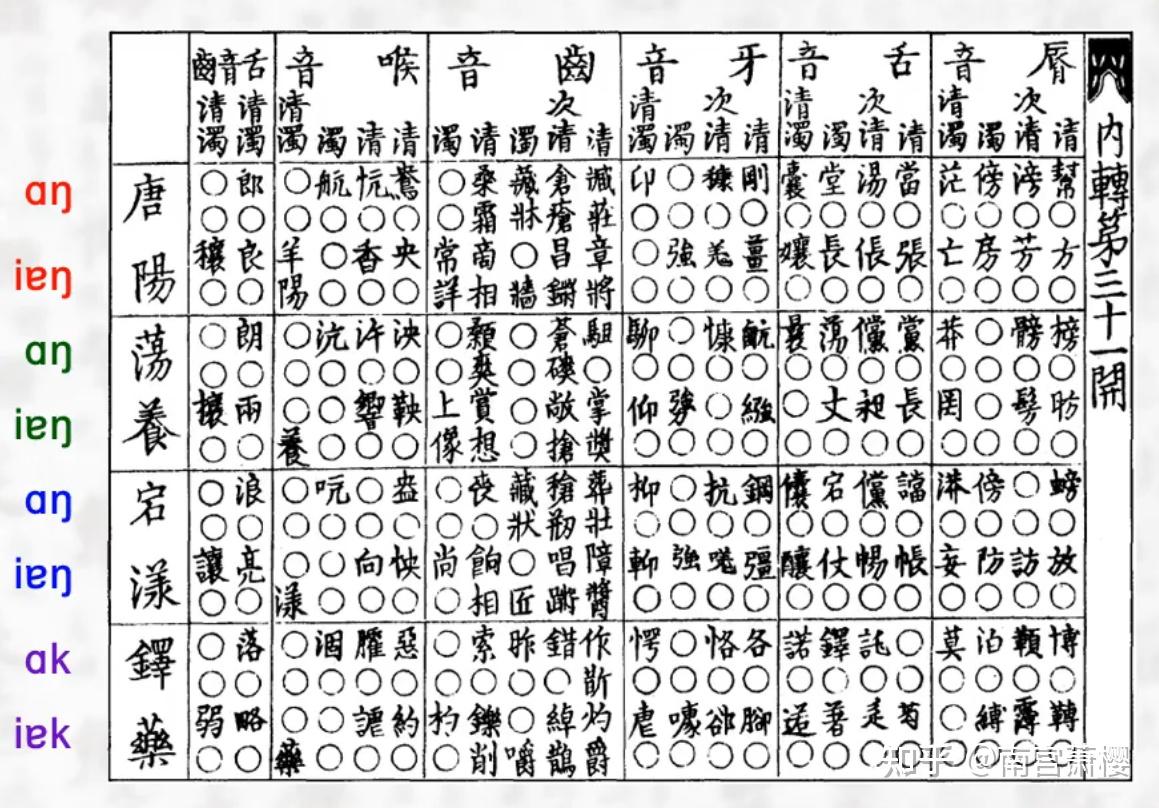 內轉第三十一開
脣音
清幫○方○榜○昉○螃○放○博○轉○
次清滂○芳○髈○髣○○○訪○○○
濁傍○房○○○○○傍○防○泊○縛○
清濁茫○亡○莽○罔○漭○妄○莫○○○
舌音
清當○張○黨○長○譡○帳○○○芍○
次清湯○倀○儻○昶○儻○暢○託○辵○
濁堂○長○蕩○丈○宕○仗○鐸○著○
清濁囊○孃○曩○○○儾○釀○諾○逽○
牙音
清剛○薑○○繈○鋼○彊○各○腳○
次清穅○羌○慷○○○抗○唴○恪○卻○
濁○○強○○○勥○○○強○○○噱○
清濁卬○○○○仰○枊○○愕○虐○
齒音
清臧莊章將駔○掌獎葬壯障醬作斮灼爵
次清倉瘡昌鏘蒼磢敞搶刱唱蹡錯○綽鵲
濁藏牀○牆○○○○藏狀○匠昨○○嚼
清桑霜商相顙爽賞想喪○餉相索○鑠削
濁○○常詳○○上像○○尚○○○杓○
喉音
清鴦○央○泱○鞅○盎○怏○惡○約○
清○香○汻○響○○○向○臛○謔○
濁航○○○沆○○○吭○○○涸○○○
清濁○○羊陽○○○養○○○漾○○○藥
舌音齒
清濁郎○良○朗○兩○浪○亮○落○略○
清濁○○穰○○○壤○○○讓○○○弱○
唐陽蕩養宕漾鐸藥
ɑŋ
iɐŋ
ɑŋ
iɐŋ
ɑŋ
iɐŋ
ɑk
iɐk
知乎 @南宫萧樱